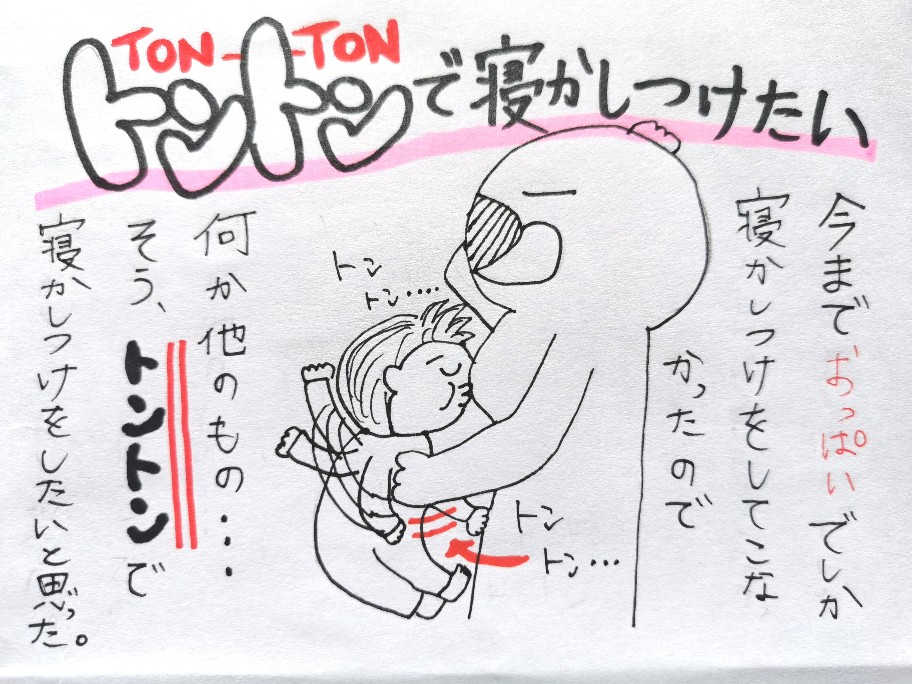 TON-TON
トントンで寝かしつけたい
今までおっぱいでしか
寝かしつけをしてこな
かったので
トン
トン‥‥
トン
トン…
何か他のもの・・・
そう、トントンで
寝かしつけをしたいと思った。